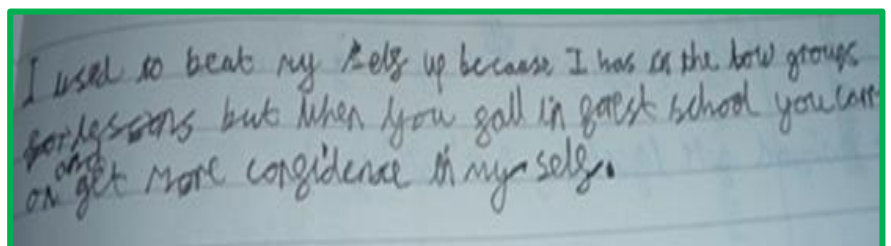 I used to beat my self up because I has in the low groups
for lessons but when you fall in forest school you carry
on and get more confidence in my self.